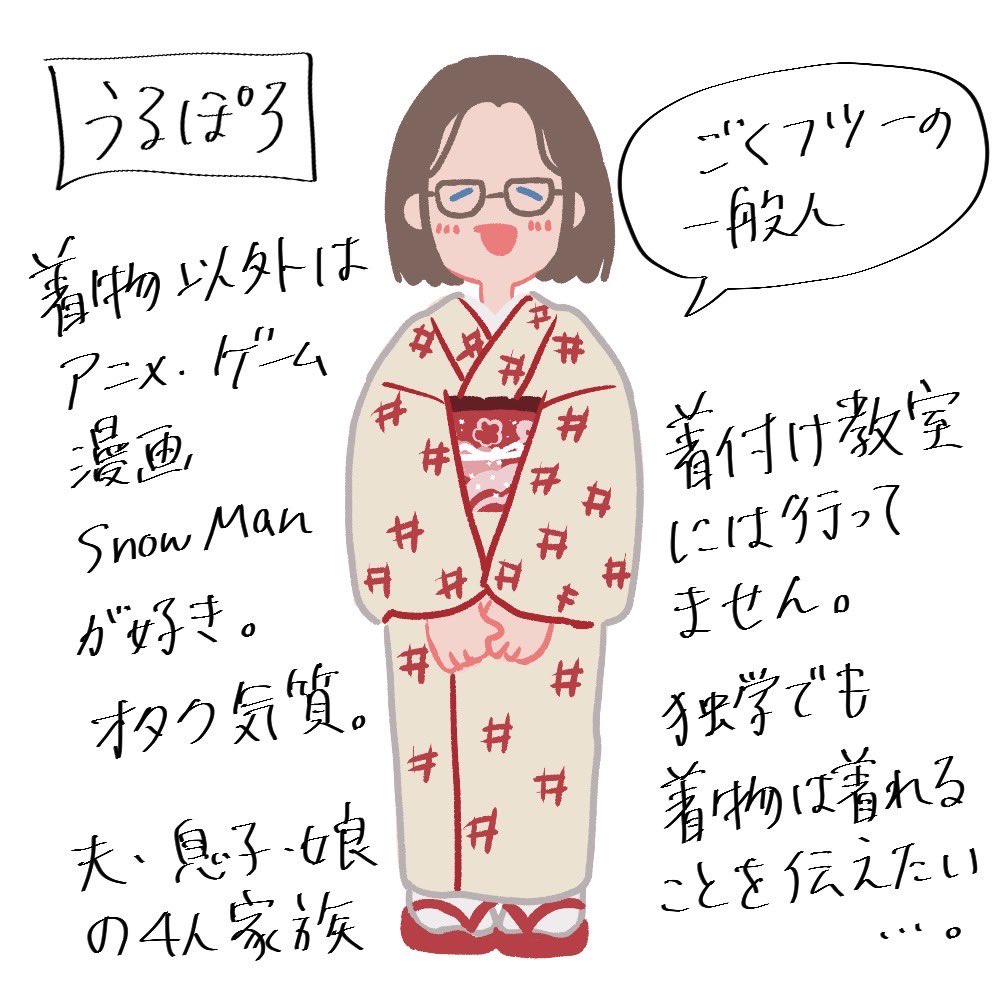 うるぽろ
ごくフツーの
一般人
着物以外は
アニメ・ゲーム
漫画
Snow Man
が好き。
オタク気質。
夫・息子・娘
の4人家族
着付け教室
には行って
ません。
独学でも
着物は着れる
ことを伝えたい
…。